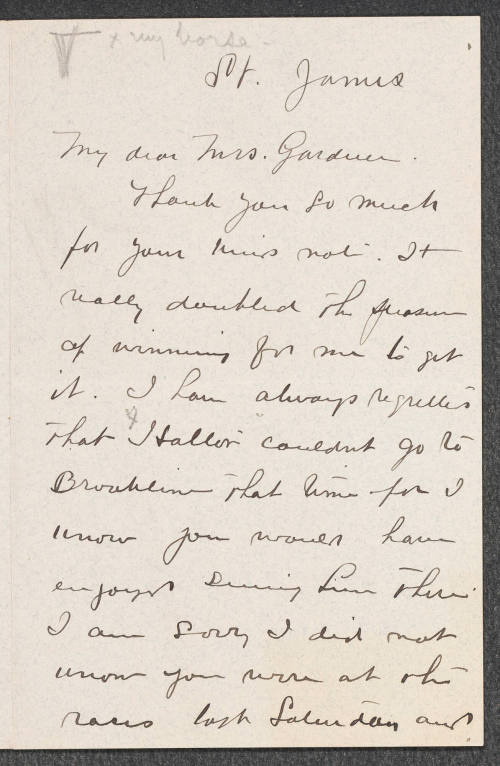 x my horse -
St. James
My dear Mrs. Gardner.
Thank you so much
for your note. It
really doubled the pleasure
of winning for me to get
it. I have always regretted
that "Hallor" couldnt go to
Brookline that time for I
know you would have
enjoyed seeing him there
I am sorry I did not
know you were at the
races last Saturday and